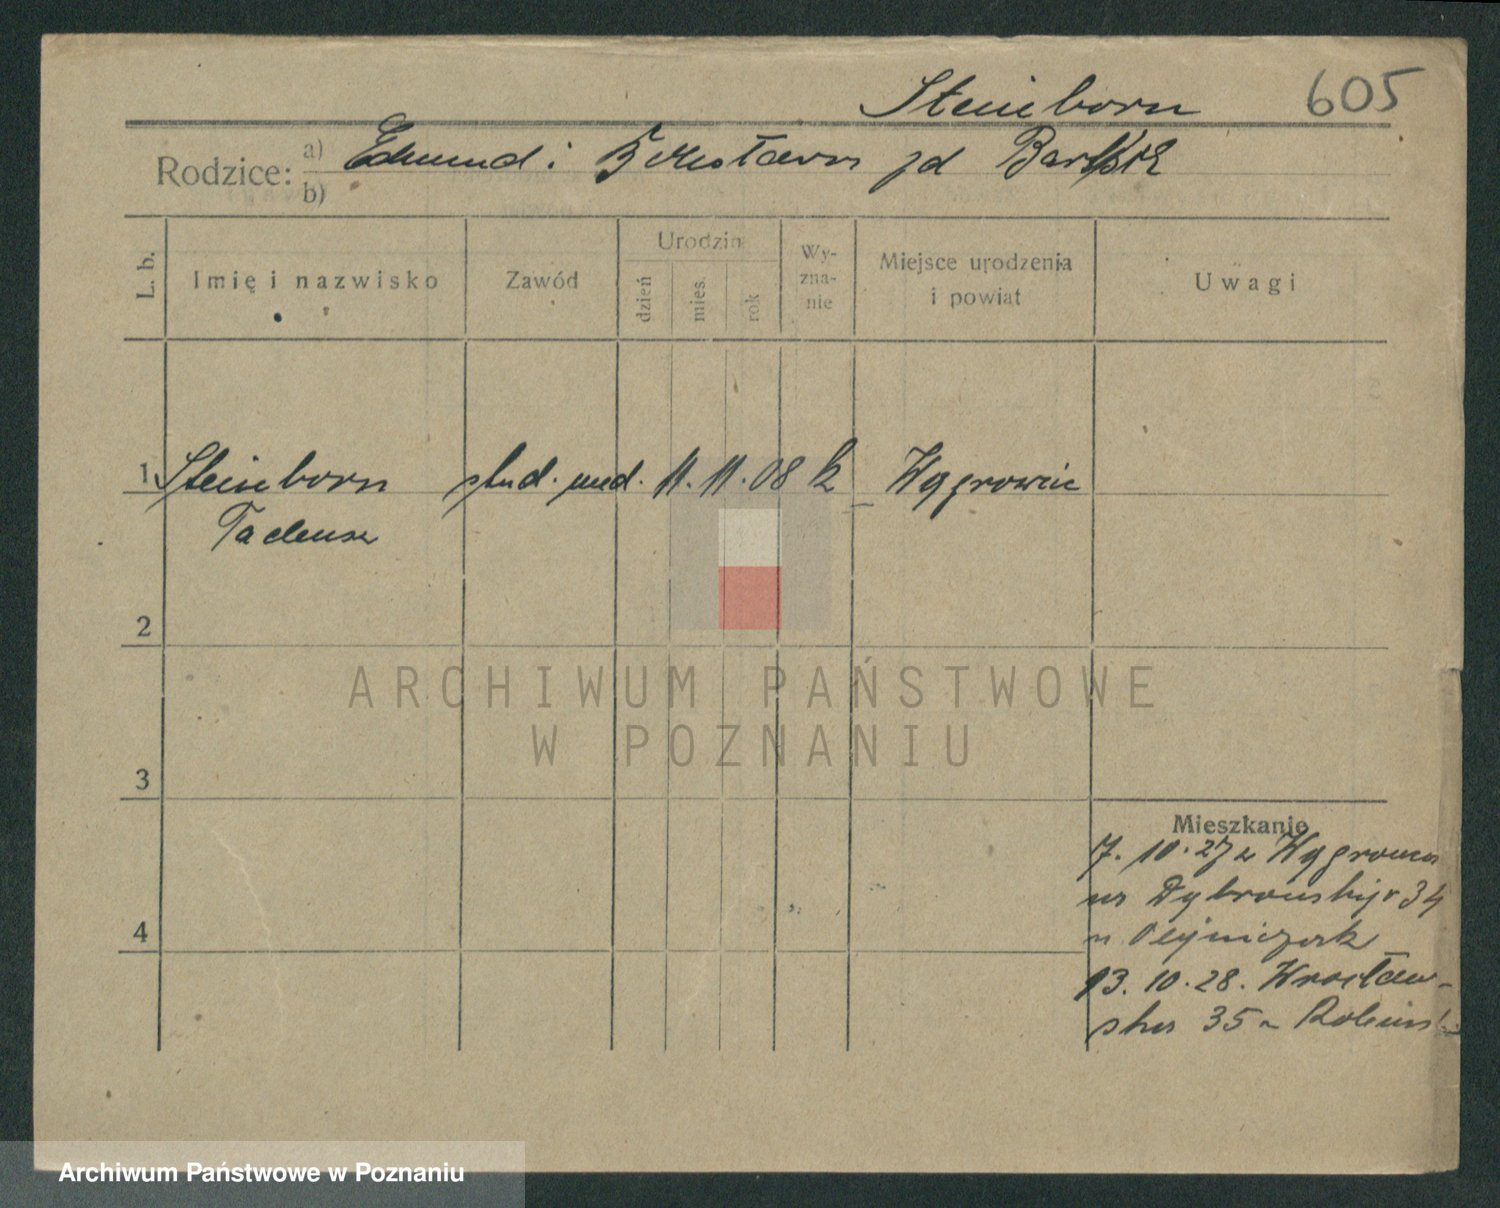 605
Steinborn
Rodzice: a) Edmund i
b)
L. b.
Imię i nazwisko
Zawód
Urodzin
dzień
mies.
rok
Wy-
zna-
nie
Miejsce urodzenia
i powiat
Uwagi
1 Steinborn stud. med. 11. 11. 08 k Wągrowiec
Tadeusz
2
3
4
Mieszkanie
7. 10. 27 z Wągrowca
34
13. 10. 28. Wrocław-
ska 35
ARCHIWUM PAŃSTWOWE
W POZNANIU
Archiwum Państwowe w Poznaniu